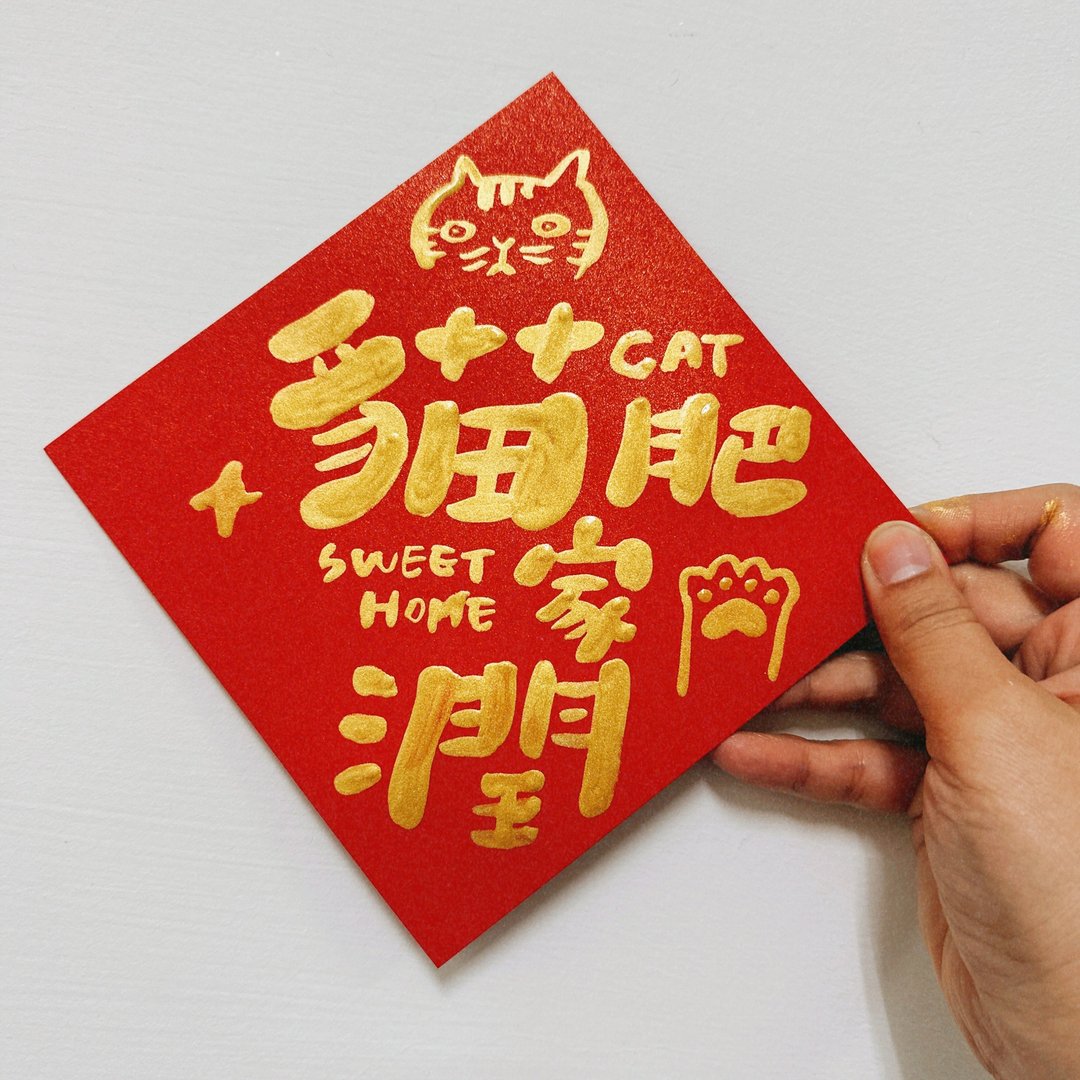 貓 CAT
肥
SWEET
HOME
家
潤